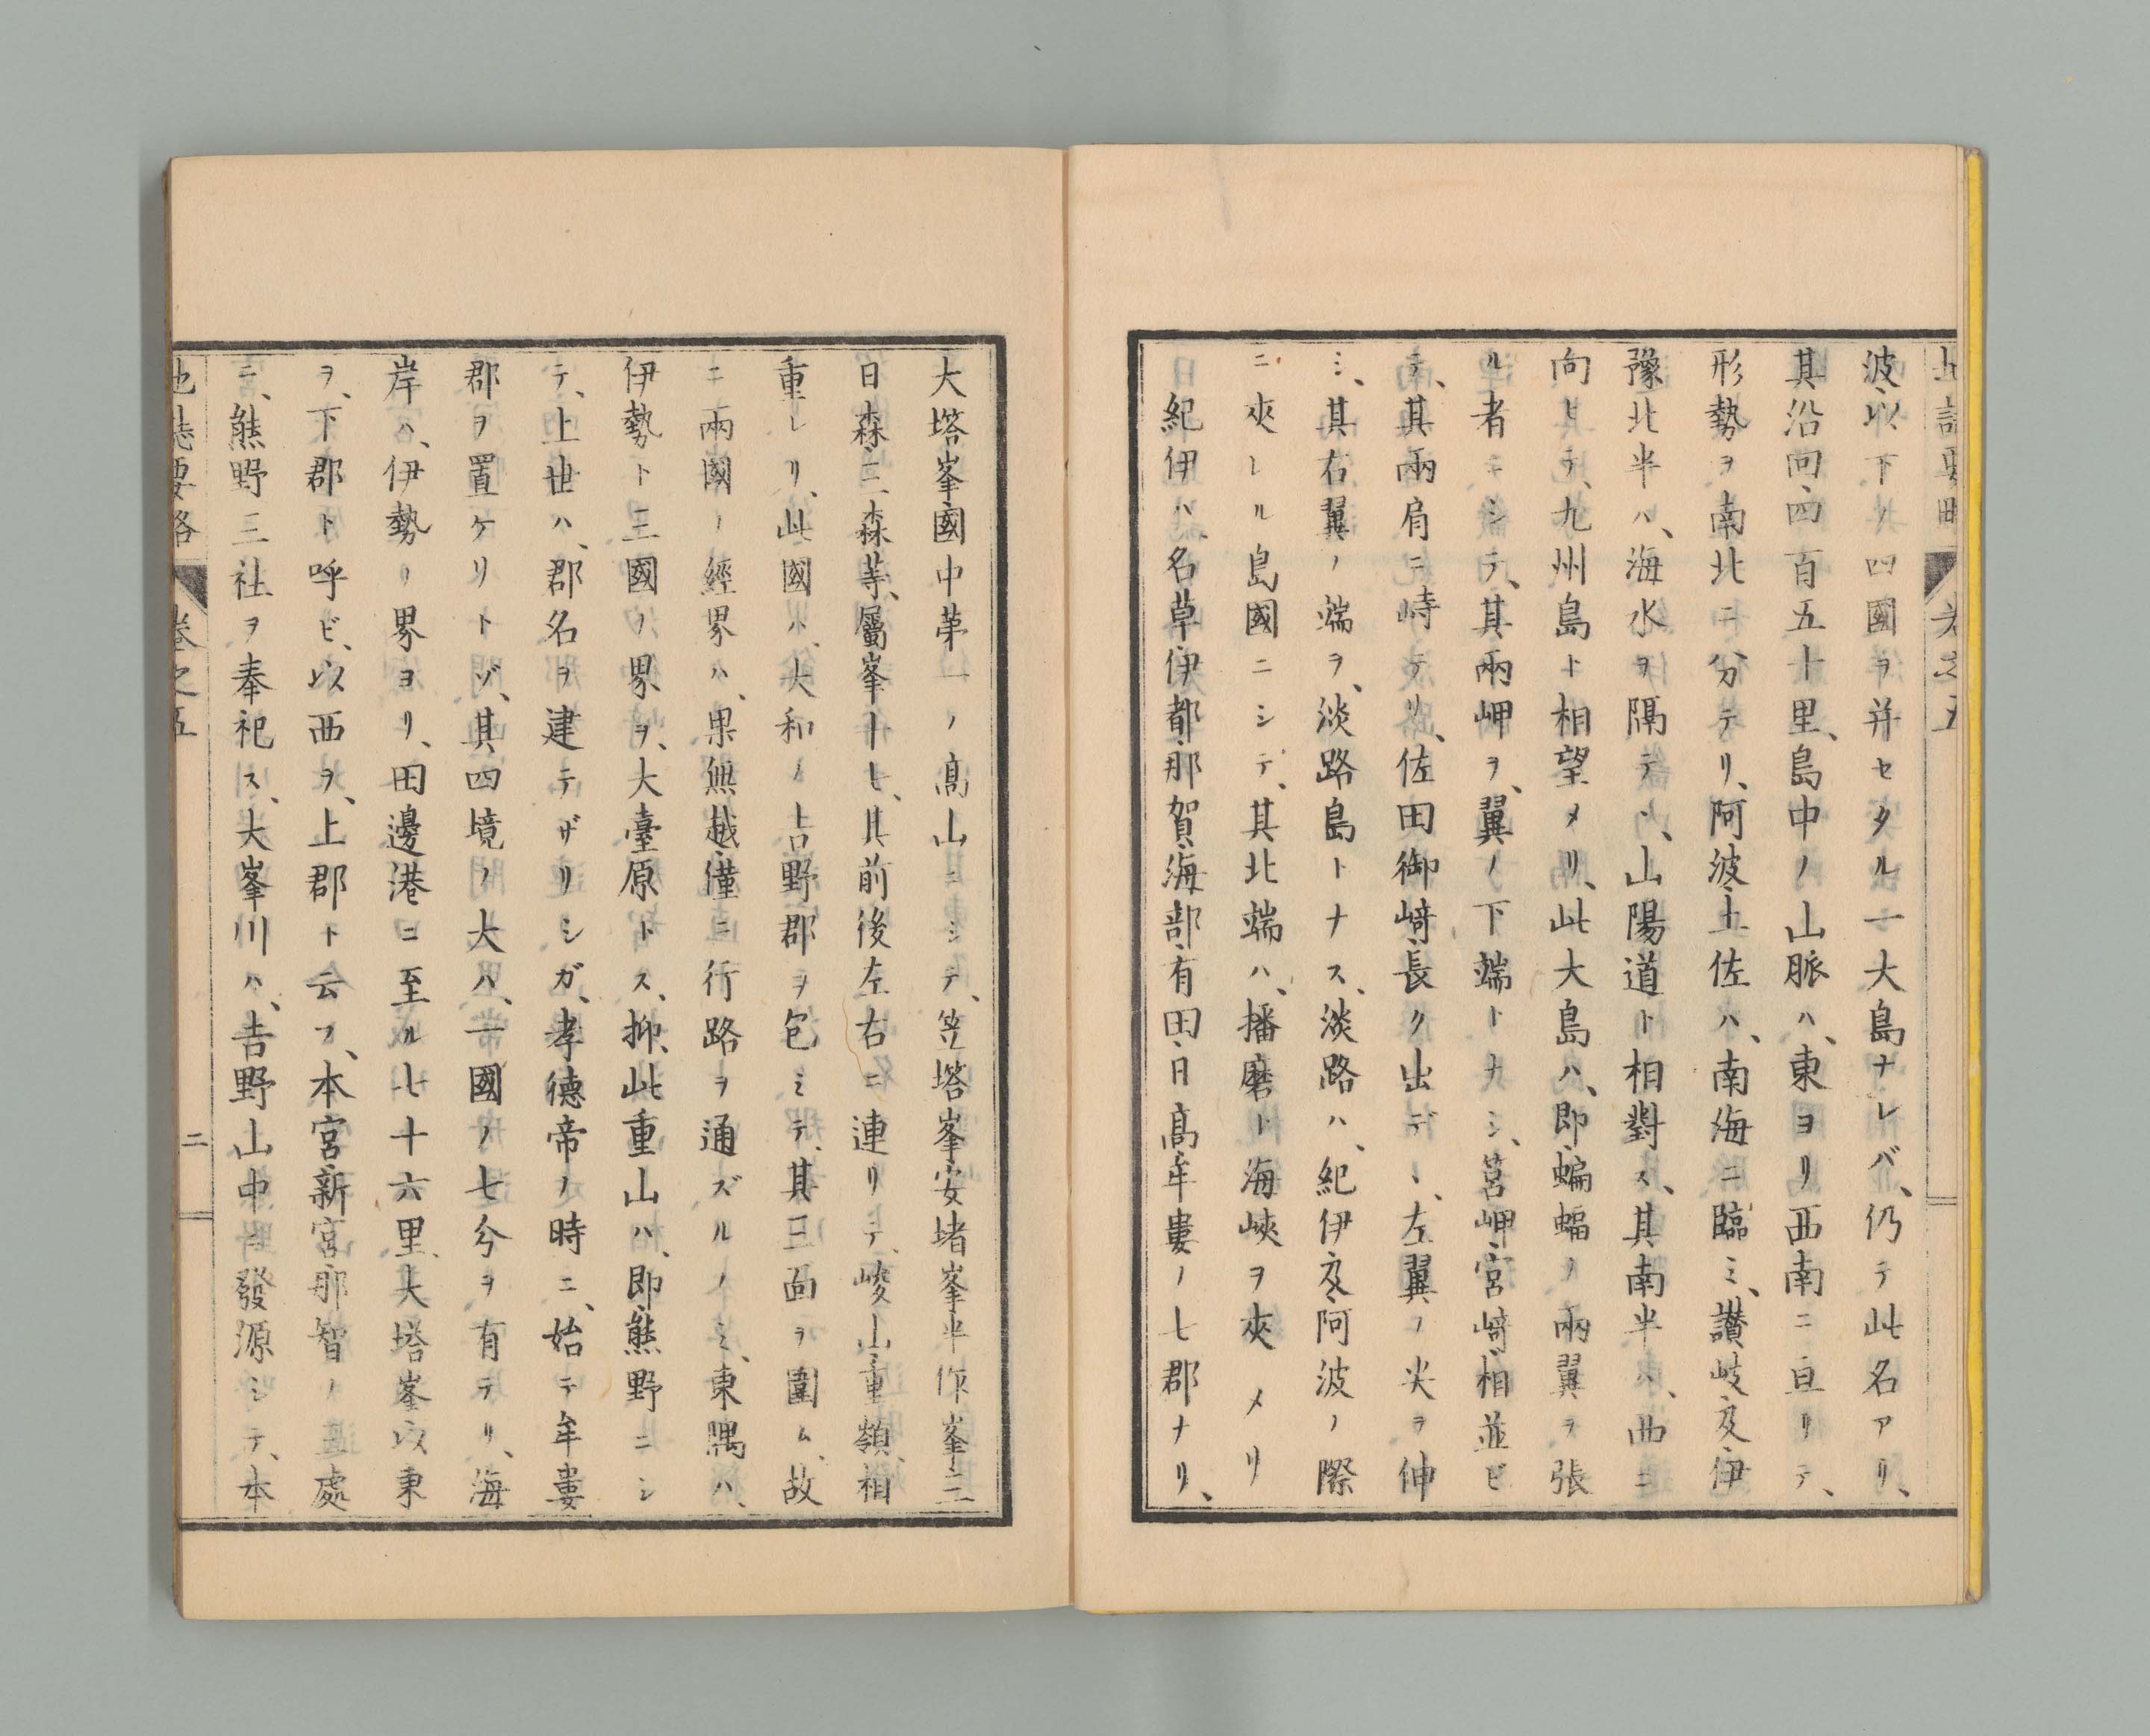 波以下ノ四國ヲ并セタル一大島ナレバ、仍テ此名アリ、
其沿回、四百五十里、島中ノ山脈ハ、東ヨリ西南ニ亘リテ、
形勢ヲ南北ニ分テリ、阿波土佐ハ、南海ニ臨ミ、讃岐及伊
豫北半ハ、海水ヲ隔テヽ、山陽道ト相對ス、其南半ハ、西ニ
向ヒテ、九州島ト相望メリ、此大島ハ、即蝙蝠ノ兩翼ヲ張
ル者ニシテ、其兩岬ヲ、翼ノ下端トナシ、莒岬宮﨑相並ビ
テ、其兩肩ニ峙テリ、佐田御﨑長ク出デヽ、左翼ノ尖ヲ伸
シ、其右翼ノ端ヲ、淡路島トナス、淡路ハ、紀伊及阿波ノ際
ニ夾レル島國ニシテ、其北端ハ、播磨ト海峽ヲ夾メリ
紀伊ハ、名草伊都那賀海部有田日髙牟婁ノ七郡ナリ、
大塔峯國中苐一ノ髙山ニシテ、笠塔峯安堵峯半作峯三
日森三森等、屬峯トシ、其前後左右ニ連リテ、峻山重嶺、相
重レリ、此國ハ、大和ノ吉野郡ヲ包ミテ、其三面ヲ圍ム、故
ニ兩國ノ經界ハ、果無越僅ニ行路ヲ通ズルノミ、東隅ハ、
伊勢ト三國ノ界ヲ、大臺原トス、抑此重山ハ、即熊野ニシ
テ、上世ハ、郡名ヲ建テザリシガ、孝德帝ノ時ニ、始テ牟婁
郡ヲ置ケリトゾ、其四境ノ大ハ、一國ノ七分ヲ有テリ、海
岸ハ、伊勢ノ界ヨリ、田邊港ニ至ル七十六里、大塔峯以東
ヲ、下郡ト呼ビ、以西ヲ、上郡ト云フ、本宮新宮那智ノ處
ニ、熊野三社ヲ奉祀ス、大峯川ハ、吉野山中ニ發源シテ、本
地誌要略 卷之五 二